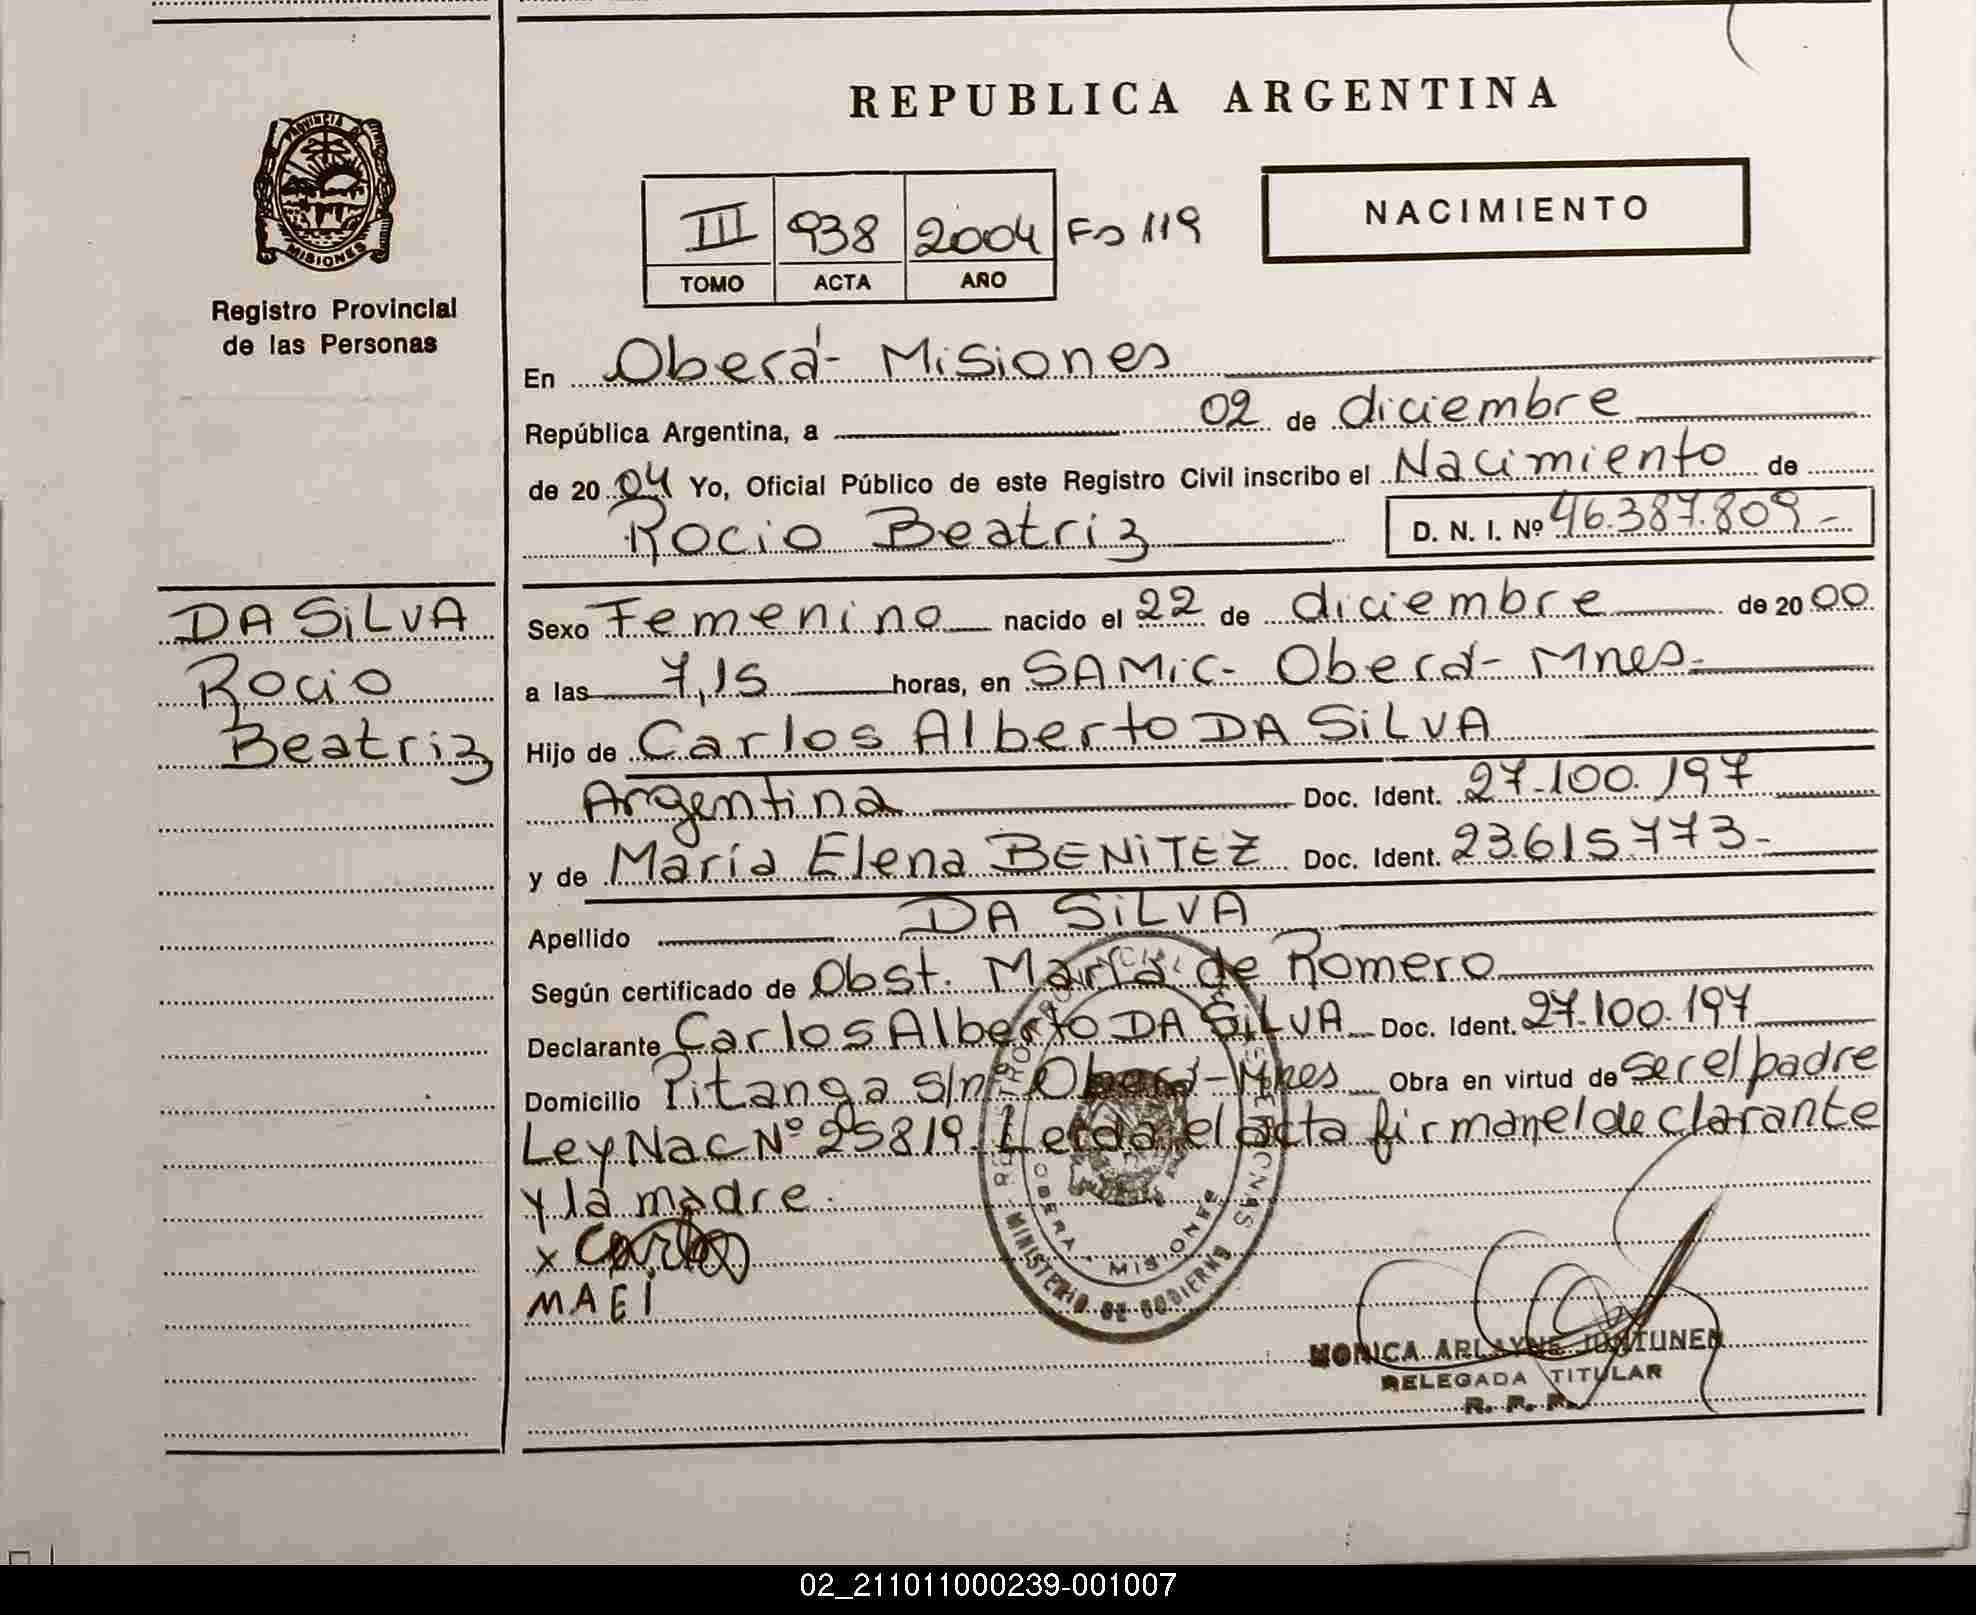 REPUBLICA ARGENTINA
PROVINCIA
MISIONES
Registro Provincial
de las Personas
III 938 2004 Fo 119
TOMO ACTA AÑO
NACIMIENTO
En Oberá- Misiones
República Argentina, a 02 de diciembre
de 2004 Yo, Oficial Público de este Registro Civil inscribo el Nacimiento de
Rocio Beatriz D. N. I. Nº 46.387.809-
DA SiLVA
Rocio
Beatriz
Sexo Femenino nacido el 22 de diciembre de 2000
a las 7,15 horas, en SAMiC- Oberá- Mnes-
Hijo de Carlos Alberto DA SiLVA
Argentina Doc. Ident. 27.100.197
y de María Elena BENiTEZ Doc. Ident. 23.615.773-
Apellido DA SiLVA
Según certificado de Obst. María de Romero
Declarante Carlos Alberto DA SiLVA Doc. Ident. 27.100.197
Domicilio Pitanga s/nº Oberá-Mnes Obra en virtud de ser el padre
Ley Nac Nº 25819. Leida el acta firman el declarante
y la madre.
x Carlos
MAEI
OBERA - MISIONES
MINISTERIO DE GOBIERNO
MONICA ARLAYNE JUSTUNEN
DELEGADA TITULAR
R. P. P.
02_211011000239-001007